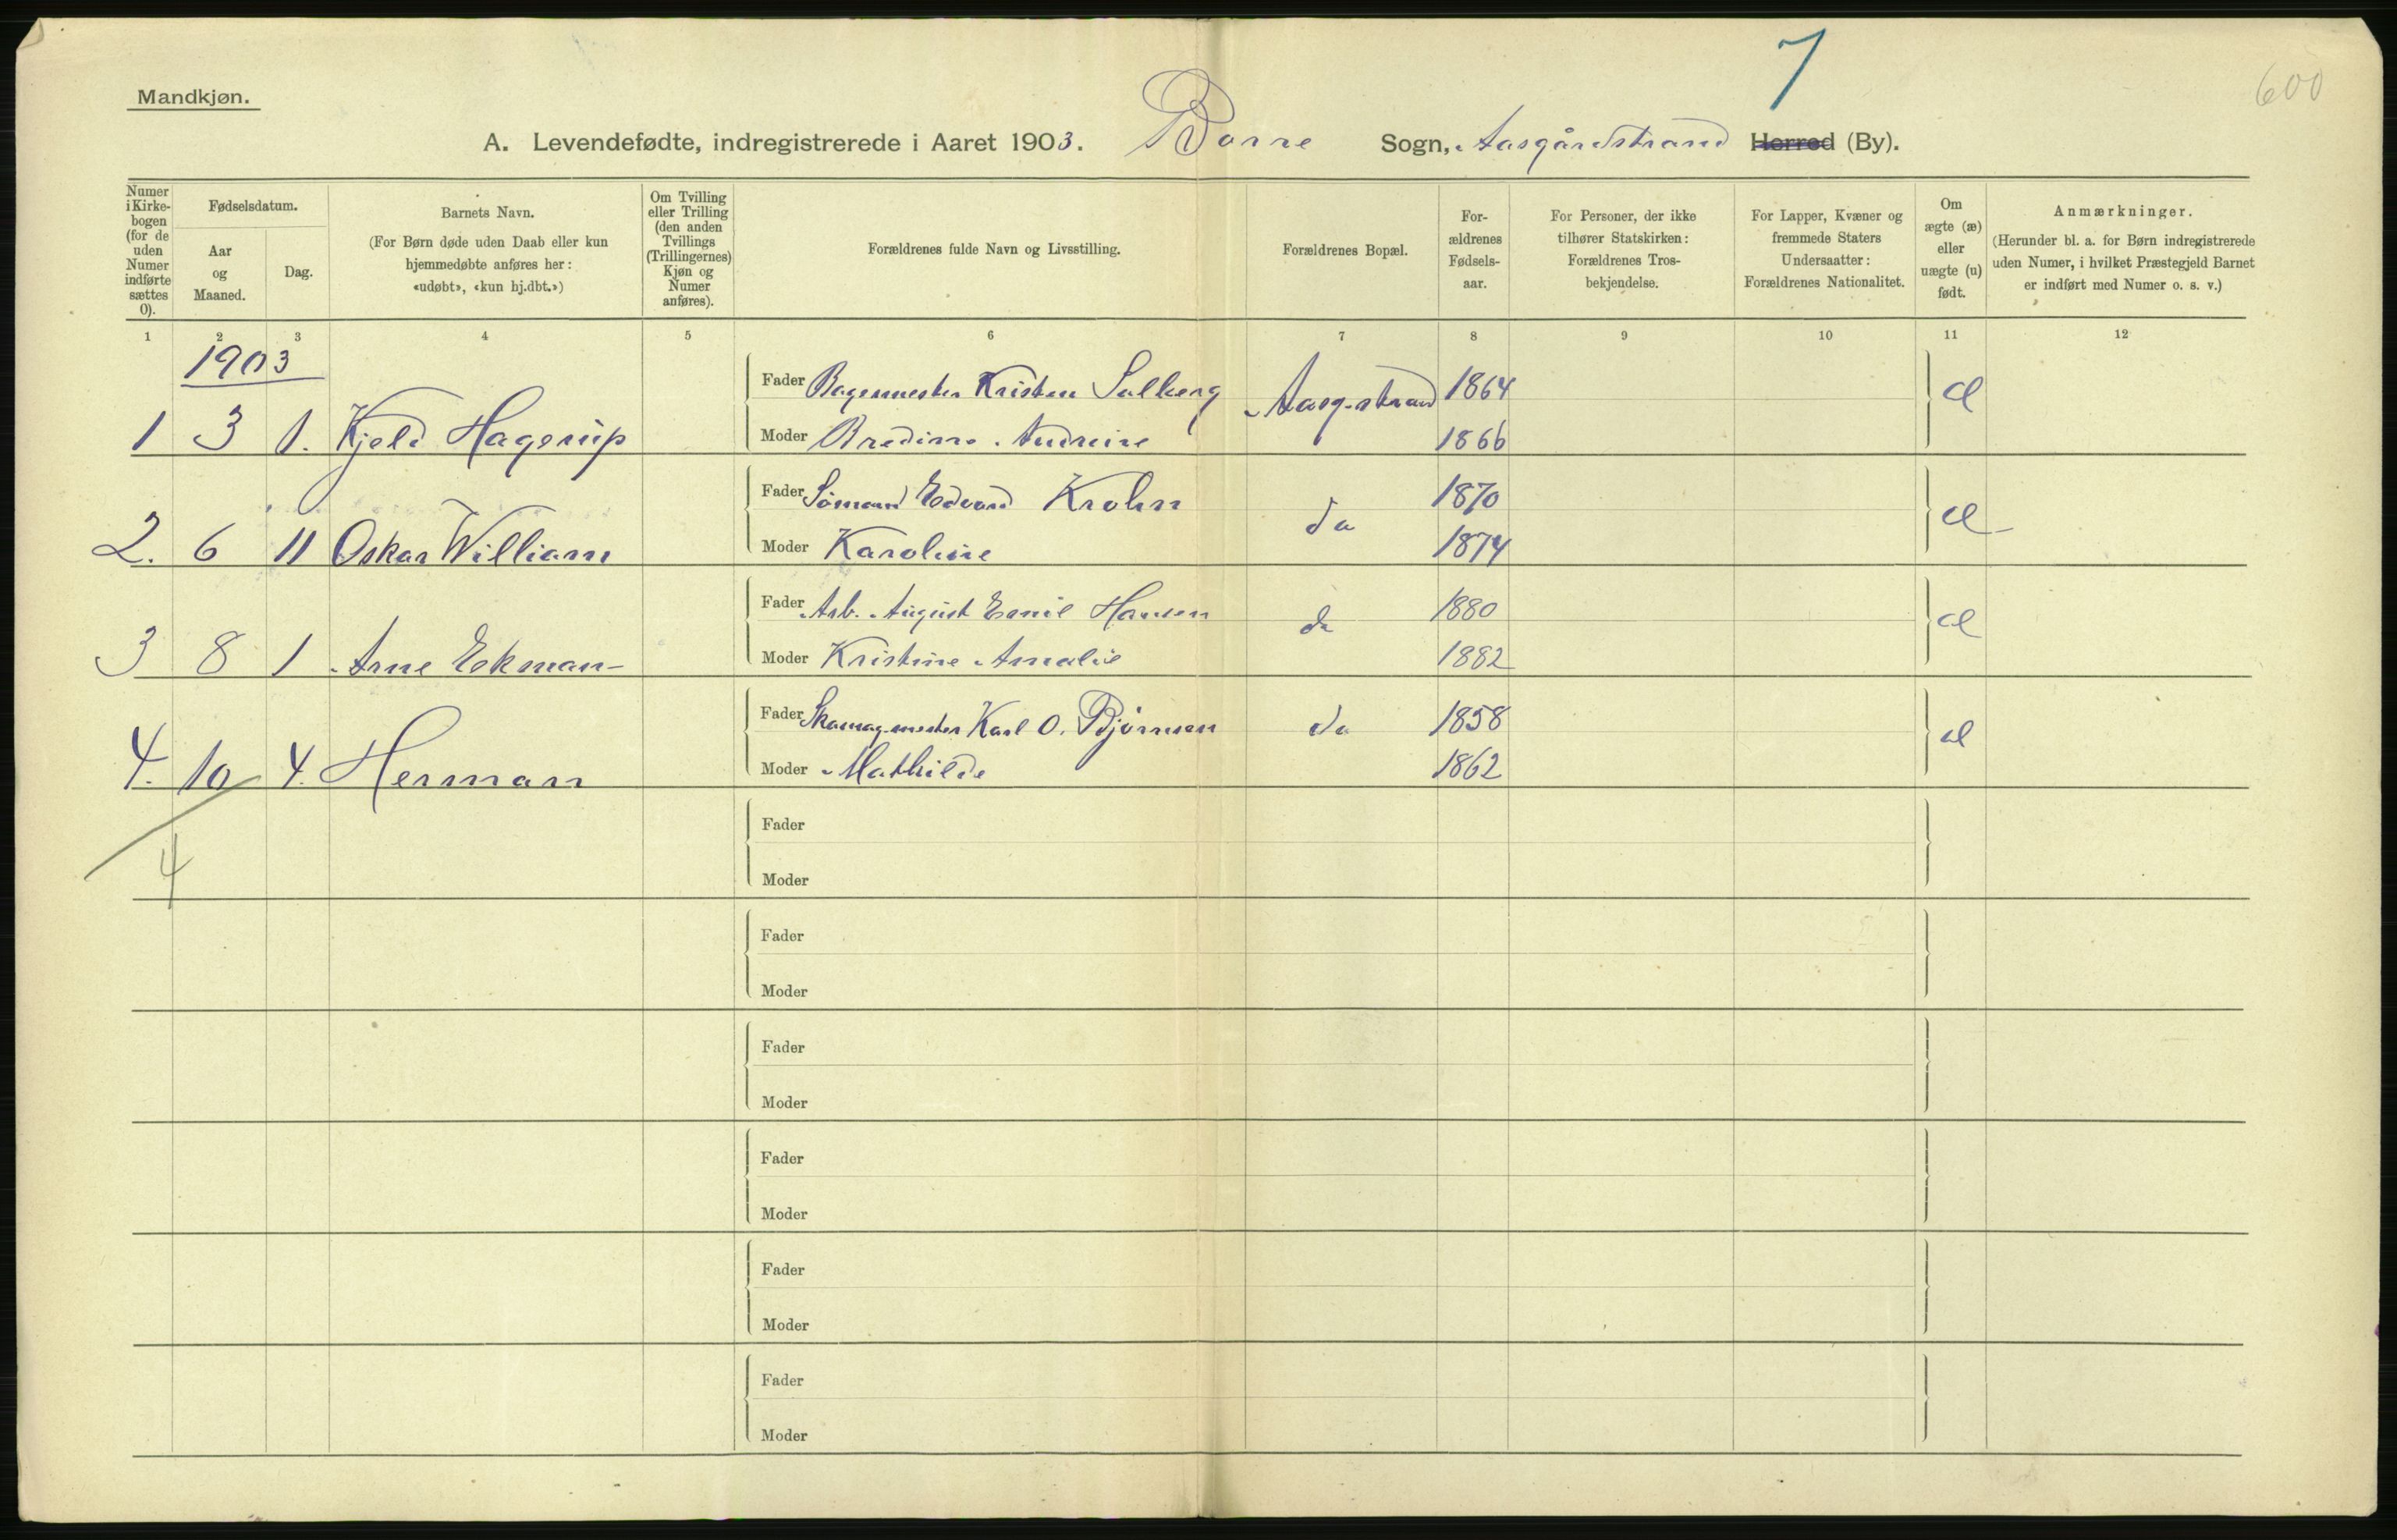 7
600
Mandkjøn.
A. Levendefødte, indregistrerede i Aaret 1903. Borre Sogn, Aasgårdstrand Herred (By).
Numer i Kirke-bogen (for de uden Numer indførte sættes 0).
Fødselsdatum.
Aar og Maaned.
Dag.
Barnets Navn.
(For Børn døde uden Daab eller kun
hjemmedøbte anføres her:
«udøbt», «kun hj.dbt.»)
Om Tvilling
eller Trilling
(den anden
Tvillings
(Trillingernes)
Kjøn og
Numer
anføres).
Forældrenes fulde Navn og Livsstilling.
Forældrenes Bopæl.
For-
ældrenes
Fødsels-
aar.
For Personer, der ikke
tilhører Statskirken:
Forældrenes Tros-
bekjendelse.
For Lapper, Kvæner og
fremmede Staters
Undersaatter:
Forældrenes Nationalitet.
Om
ægte (æ)
eller
uægte (u)
født.
Anmærkninger.
(Herunder bl. a. for Børn indregistrerede
uden Numer, i hvilket Præstegjeld Barnet
er indført med Numer o. s. v.)
1 2 3 4 5 6 7 8 9 10 11 12
1903
Fader Bagermester Kristen Solberg Aasg.strand 1864 æ
1 3 1. Kjeld Hagerup Moder Bredine Andreine 1866
Fader Sømand Edvard Krohn do 1870 æ
2. 6 11 Oskar William Moder Karoline 1874
Fader Arb. August Emil Hansen do 1880 æ
3 8 1 Arne Ekman Moder Kristine Amalie 1882
Fader Skomagmester Karl O. Bjørnsen do 1858 æ
4. 10 4. Herman Moder Mathilde 1862
4
Fader
Moder
Fader
Moder
Fader
Moder
Fader
Moder
Fader
Moder
Fader
Moder